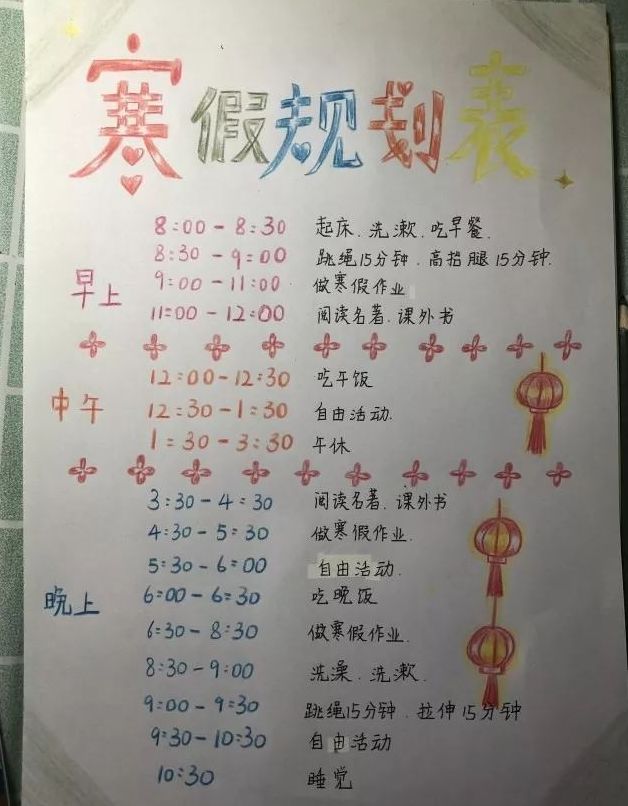 寒假规划表
8:00-8:30 起床.洗漱.吃早餐.
8:30-9:00 跳绳15分钟.高抬腿15分钟.
早上
9:00-11:00 做寒假作业
11:00-12:00 阅读名著.课外书
12:00-12:30 吃午饭
中午
12:30-1:30 自由活动.
1:30-3:30 午休
3:30-4:30 阅读名著.课外书
4:30-5:30 做寒假作业.
5:30-6:00 自由活动.
晚上
6:00-6:30 吃晚饭
6:30-8:30 做寒假作业.
8:30-9:00 洗澡.洗漱.
9:00-9:30 跳绳15分钟.拉伸15分钟
9:30-10:30 自由活动
10:30 睡觉